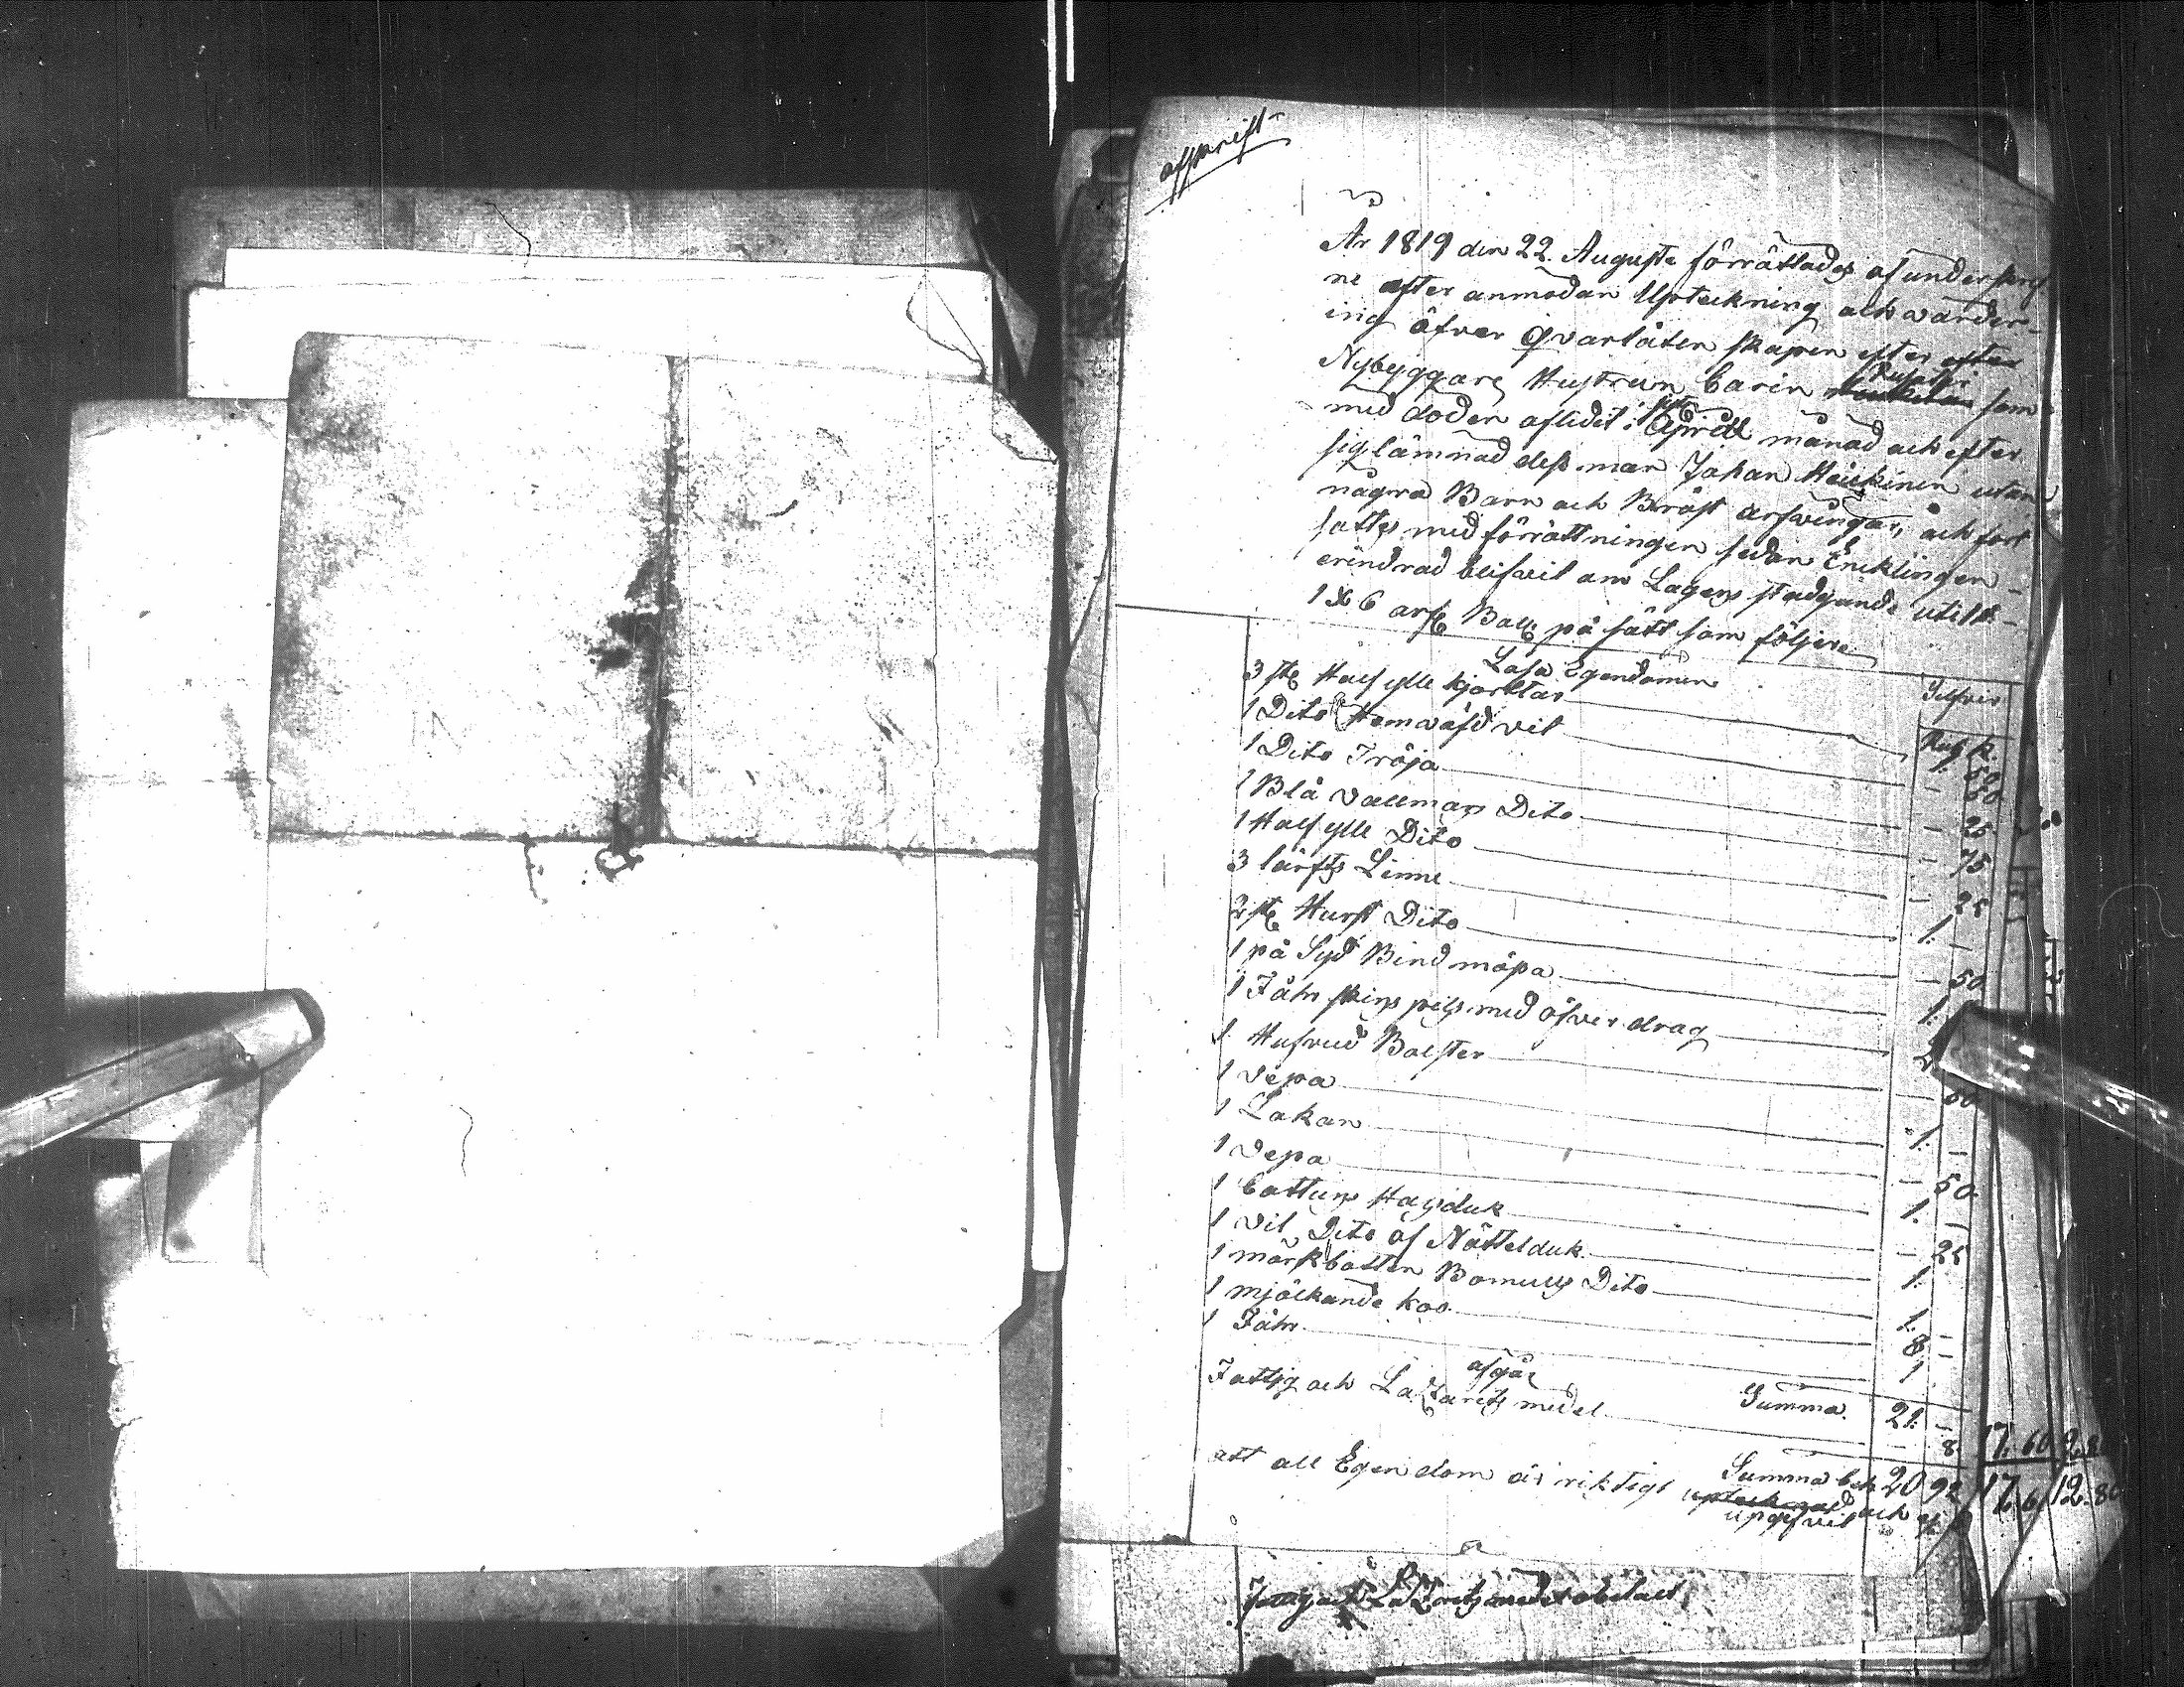 afskrift
År 1819 den 22. Auguste förrättades af underskrif
ne efter anmodan Upteckning ock värder-
ing öfver Qvarlåten skapen efter
Nybyggare Hustrun Carin som
med döden afledit i sist April månad ock efter
sig lämnad dess man Johan Heickinen utan
några Barn ock Bröst arfvingar, ock fort
sattes med förrättningen sedan Encklingen
erindrad blifvit om Lagens stadgande uti 1 §
1 & 6 arfs Balk på sätt som följer
Lösa Egendomen
Silfver
Rub k.
3 st Half ylle kjortlar 1. 50
1 Dito Hemväfd vit - 50
1 Dito Tröja - 25
1 Blå vallmars Dito - 75
1 Half ylle Dito - 25
3 lärfts Linne 1. -
2 st Hurst Dito - 50
1 på Syd Bindmöpa 1.
1 Fåhr skins pels med öfver drag
1 Hufvud Bolster - 50
1 vepa 1. -
1 Lakan - 50
1 vepa 1. -
1 Cattuns Haysduk - 25
1 vit Dito af Nötteldduk 1.
1 mörkbotten Bomulls Dito 1. -
1 mjölkande koo 8 -
1 Fåhr 1
Summa 21. -
afgår
Fattig ock Lazarets medel - 8
17. 60 2. 80
Summa beh 20 92
17. 6 12. 80
att all Egendom är riktigt uptecknad ock
upgifvit
Fattig ock Lazarets medel betalt